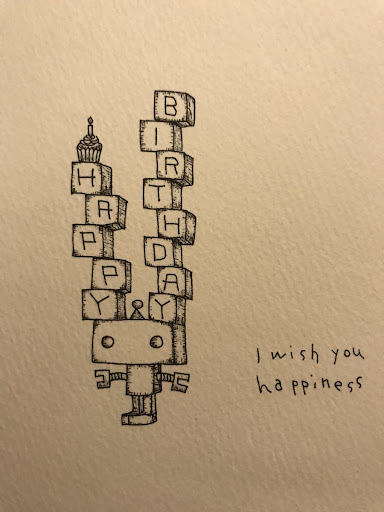 HAPPY
BIRTHDAY
I wish you
happiness